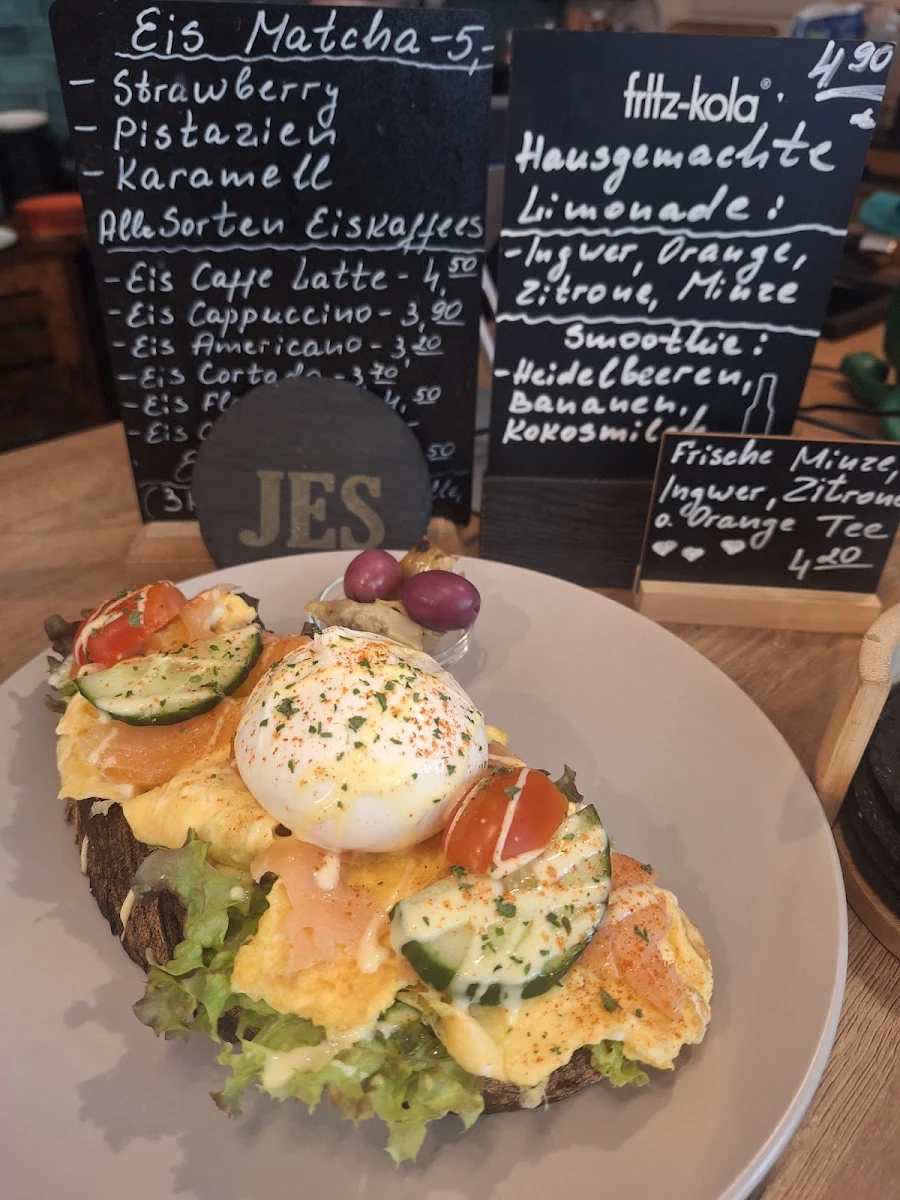 Eis Matcha - 5,-
- Strawberry
- Pistazien
- Karamell
Alle Sorten Eiskaffees
- Eis Caffe Latte - 4,50
- Eis Cappuccino - 3,90
- Eis Americano - 3,20
- Eis Cortado - 3,70
- Eis Fl 4,50
- Eis
50
JES
4,90
fritz-kola®
Hausgemachte
Limonade:
- Ingwer, Orange,
Zitrone, Minze
Smoothie:
- Heidelbeeren,
Bananen,
Kokosmilch
Frische Minze,
Ingwer, Zitrone
o. Orange Tee
4,20